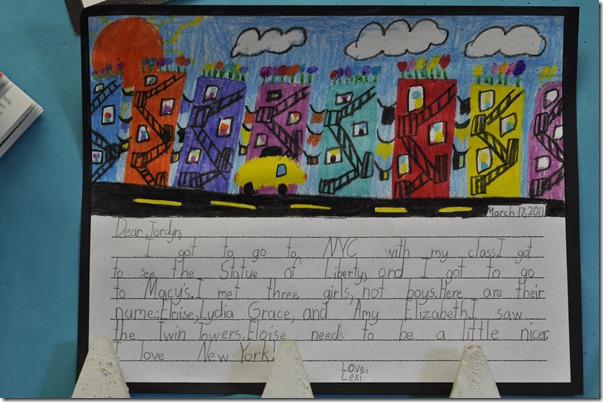 March 17, 2011
Dear Jordyn,
I got to go to NYC with my class. I got
to see the Statue of Liberty, and I got to go
to Macy's. I met three girls, not boys. Here are their
name: Eloise, Lydia Grace, and Amy Elizabeth. I saw
the Twin Towers. Eloise needs to be a little nicer.
I love New York.
Love,
Lexi